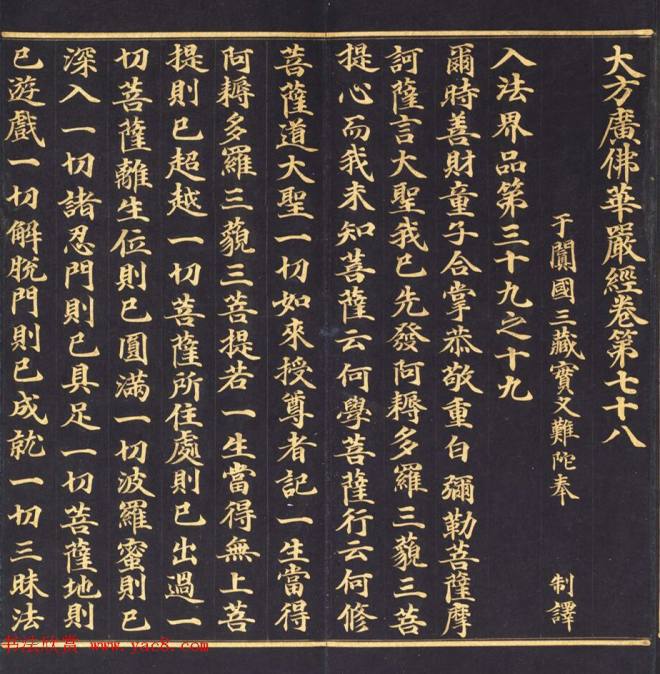 大方廣佛華嚴經卷第七十八
于闐國三藏實叉難陀奉 制譯
入法界品第三十九之十九
爾時善財童子合掌恭敬重白彌勒菩薩摩
訶薩言大聖我已先發阿耨多羅三藐三菩
提心而我未知菩薩云何學菩薩行云何修
菩薩道大聖一切如來授尊者記一生當得
阿耨多羅三藐三菩提若一生當得無上菩
提則已超越一切菩薩所住處則已出過一
切菩薩離生位則已圓滿一切波羅蜜則已
深入一切諸忍門則已具足一切菩薩地則
已遊戲一切解脫門則已成就一切三昧法
书法欣赏 www.yac8.com